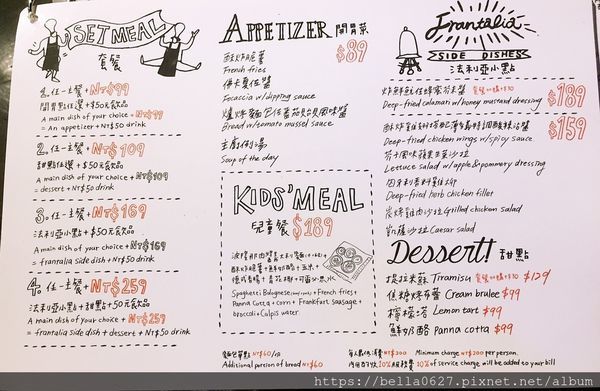 SET MEAL
套餐
1. 任一主餐 + NT$99
開胃菜任選 + $50元飲品
A main dish of your choice + NT$99
= An appetizer + NT$50 drink
2. 任一主餐 + NT$109
甜點任選 + $50元飲品
A main dish of your choice + NT$109
= dessert + NT$50 drink
3. 任一主餐 + NT$169
法利亞小點 + $50元飲品
A main dish of your choice + NT$169
= frantalia side dish + NT$50 drink
4. 任一主餐 + NT$259
法利亞小點 + 甜點 + 50元飲品
A main dish of your choice + NT$259
= frantalia side dish + dessert + NT$50 drink
APPETIZER 開胃菜
$89
酥炸脆薯
French fries
佛卡夏佐醬
Focaccia w/dipping sauce
爐烤麵包佐番茄貽貝風味醬
Bread w/tomato mussel sauce
主廚例湯
Soup of the day
KIDS' MEAL
兒童餐 $189
酥炸脆薯 + 鮮奶酪 + 玉米 +
Spaghetti Bolognese + French fries +
Panna Cotta + corn + Frankfurt sausage +
broccoli + Calpis water
麵包單點 NT$60/份
Additional portion of bread NT$60
Frantalia
SIDE DISHES
法利亞小點
$189
Deep-fried calamari w/honey mustard dressing
$159
Deep-fried chicken wings w/spicy sauce
芥末風味蘋果生菜沙拉
Lettuce salad w/apple & pommery dressing
Deep-fried herb chicken fillet
炭烤雞肉沙拉 Grilled chicken salad
凱薩沙拉 Caesar salad
Dessert! 甜點
提拉米蘇 Tiramisu 套餐加購+$30 $129
焦糖烤布蕾 Cream brulee $99
檸檬塔 Lemon tart $99
鮮奶酪 Panna cotta $99
每人最低消費 NT$200 Minimum charge NT$200 per person.
10% of service charge will be added to your bill
https://bella0627.pixnet.net/album